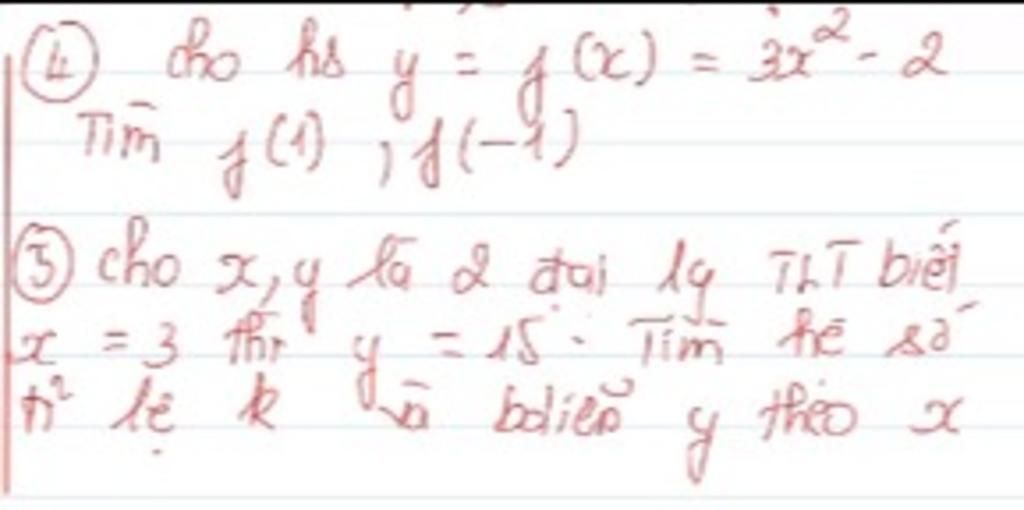 ④ cho hs y = f(x) = 3x² - 2
Tìm f(1) ; f(-1)
⑤ cho x, y là 2 đại lg TLT biết
x = 3 thì y = 15. Tìm hệ số
tỉ lệ k và bdiễn y theo x